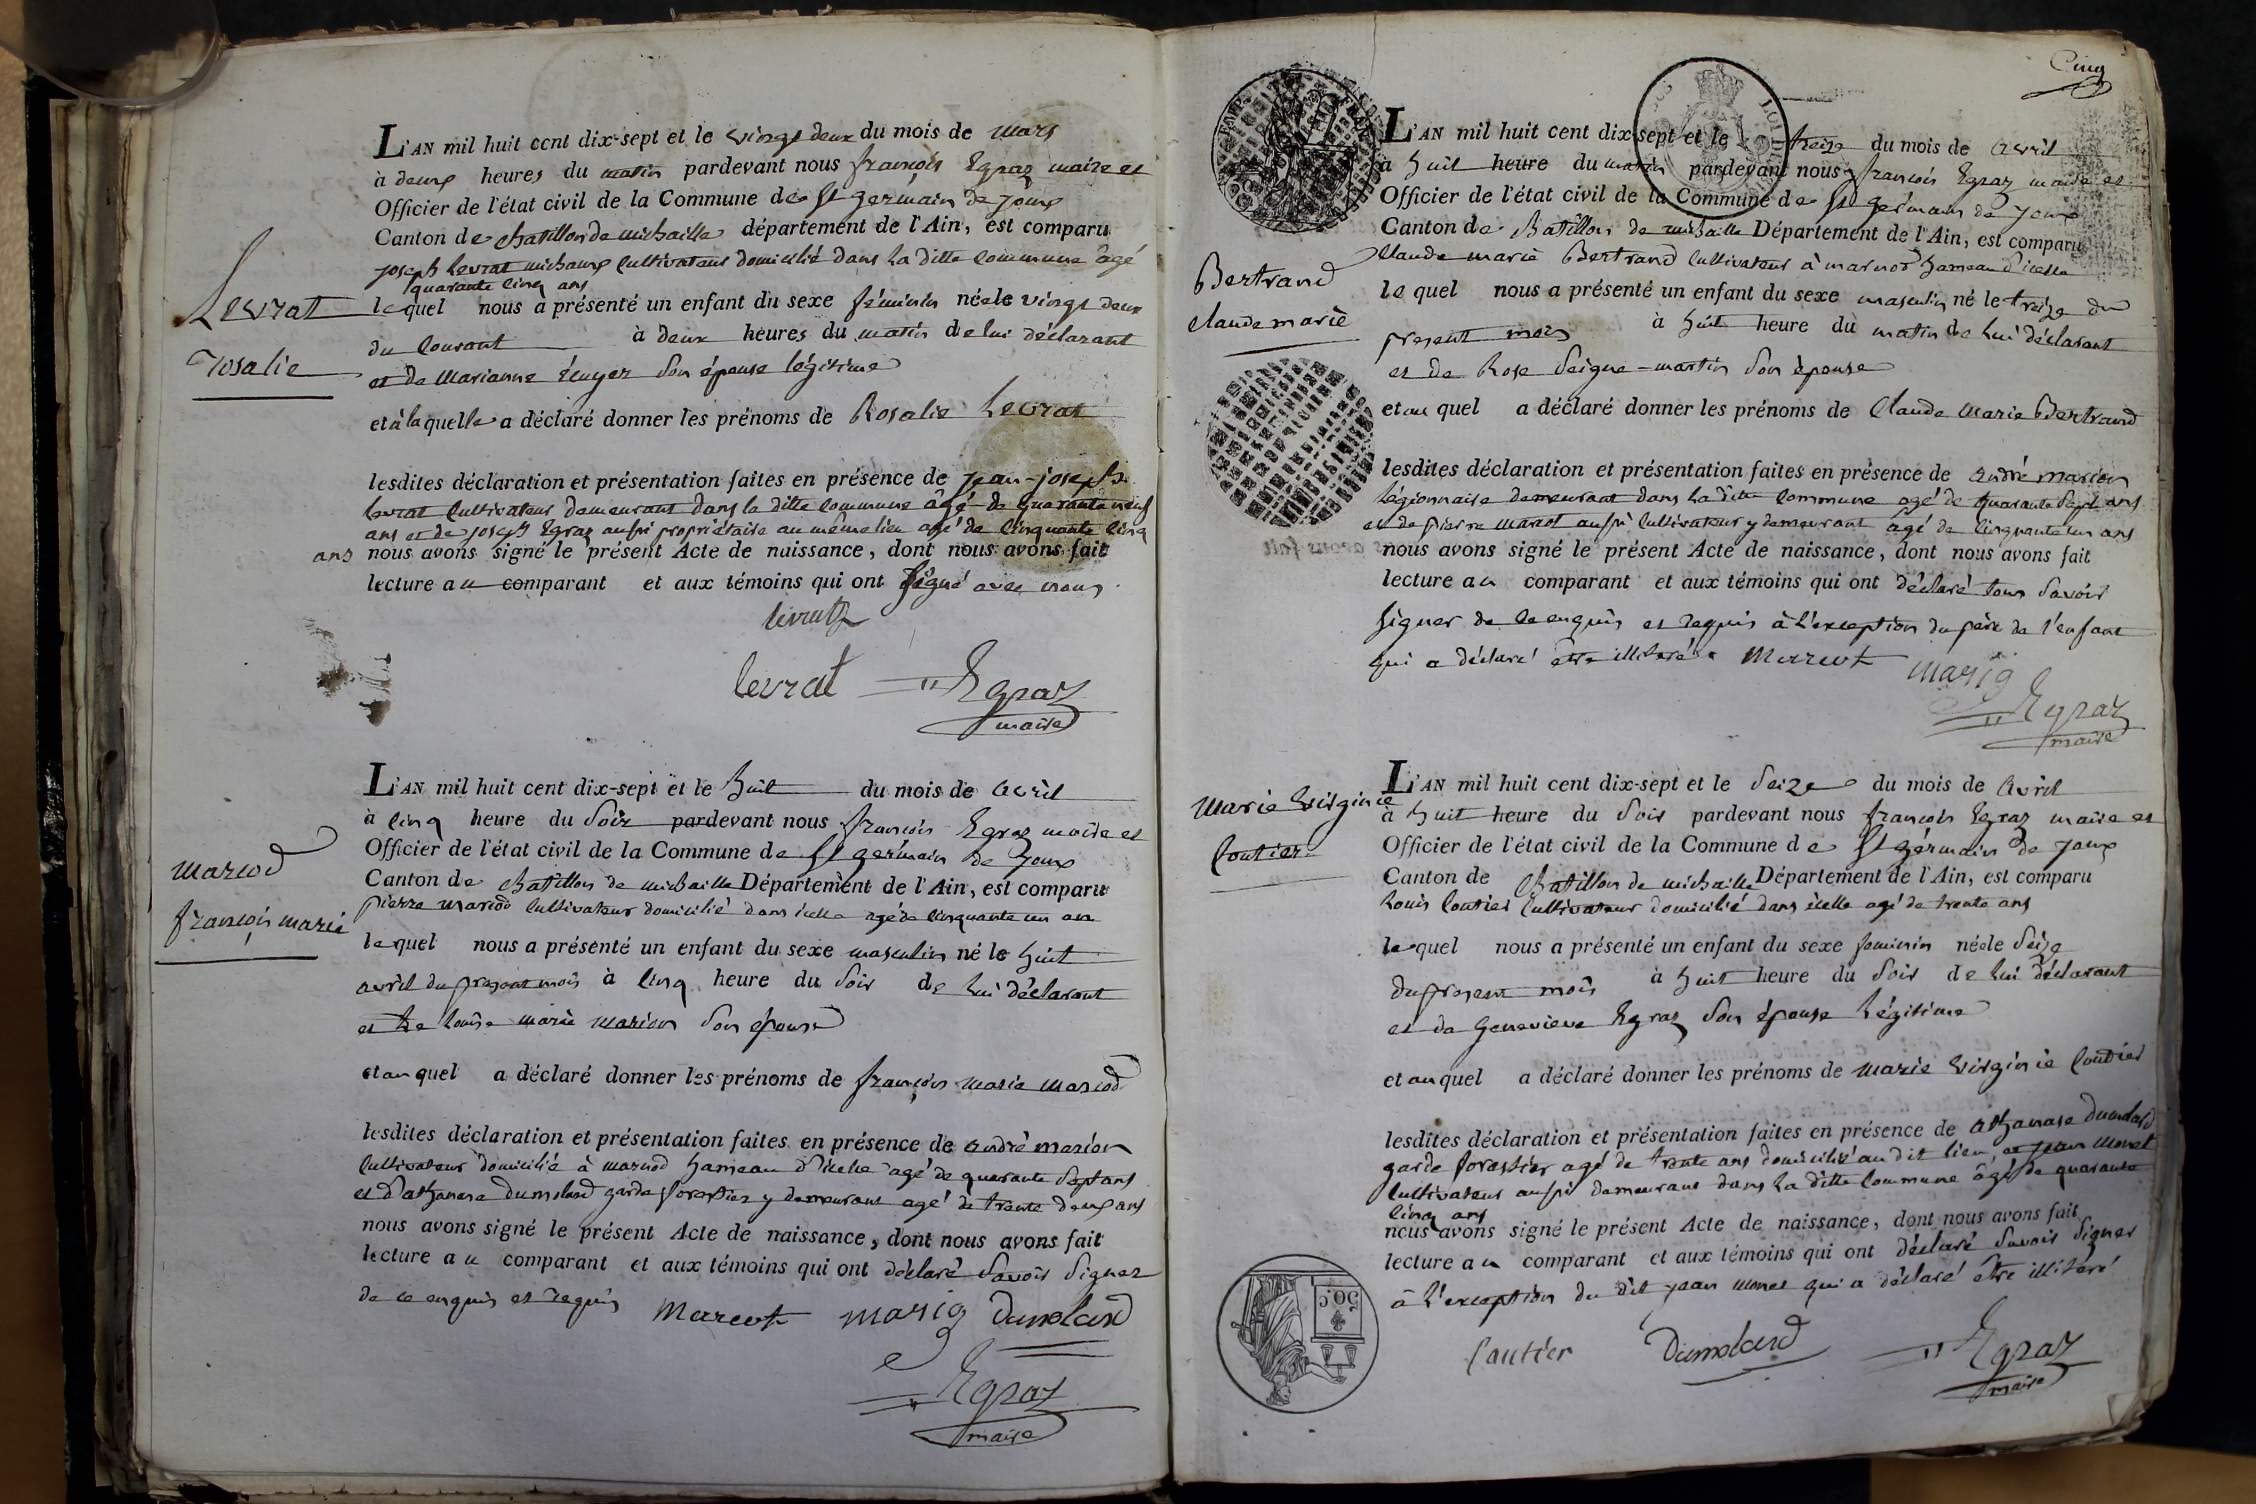 Levrat
Rosalie
L'AN mil huit cent dix-sept et le vingt deux du mois de mars
à deux heures du matin pardevant nous françois Egraz maire et
Officier de l'état civil de la Commune de St germain de joux
Canton de chatillon de michaille département de l'Ain, est comparu
joseph Levrat michaux Cultivateur domicilié dans la ditte commune âgé
quarante cinq ans
lequel nous a présenté un enfant du sexe féminin née le vingt deux
du Courant à deux heures du matin de lui déclarant
et de Marianne Ecuyer son épouse légitime
et à laquelle a déclaré donner les prénoms de Rosalie Levrat
lesdites déclaration et présentation faites en présence de jean-joseph
levrat Cultivateur demeurant dans la ditte commune âgé de quarante neuf
ans et de joseph Egraz aussi propriétaire au même lieu agé de cinquante cinq
ans nous avons signé le présent Acte de naissance, dont nous avons fait
lecture au comparant et aux témoins qui ont signé avec nous
levrat
levrat Egraz
maire
marcod
françois marie
L'AN mil huit cent dix-sept et le huit du mois de avril
à cinq heure du soir pardevant nous françois Egraz maire et
Officier de l'état civil de la Commune de St germain de joux
Canton de chatillon de michaille Département de l'Ain, est comparu
pierre marcod Cultivateur domicilié dans icelle agé de cinquante un an
lequel nous a présenté un enfant du sexe masculin né le huit
avril du present mois à cinq heure du soir de lui déclarant
et de Louise marie marion son épouse
et au quel a déclaré donner les prénoms de françois marie marcod
lesdites déclaration et présentation faites en présence de andré marion
Cultivateur domicilié à marnod hameau d'icelle agé de quarante sept ans
et d'athanase dumolard garde forestier y demeurant agé de trente deux ans
nous avons signé le présent Acte de naissance, dont nous avons fait
lecture au comparant et aux témoins qui ont déclaré savoir signer
de ce enquis et requis Marcot marig Dumolard
Egraz
maire
Cinq
Bertrand
Claude marie
L'AN mil huit cent dix-sept et le treize du mois de avril
à huit heure du matin pardevant nous françois Egraz maire et
Officier de l'état civil de la Commune de St germain de joux
Canton de chatillon de michaille Département de l'Ain, est comparu
Claude marie Bertrand Cultivateur à marnod hameau d'icelle
lequel nous a présenté un enfant du sexe masculin né le treize du
present mois à huit heure du matin de lui déclarant
et de Rose Seigne-martin son épouse
et au quel a déclaré donner les prénoms de Claude Marie Bertrand
lesdites déclaration et présentation faites en présence de andré marion
légionnaire demeurant dans la ditte commune agé de quarante sept ans
et de pierre marcot aussi Cultivateur y demeurant âgé de cinquante un ans
nous avons signé le présent Acte de naissance, dont nous avons fait
lecture au comparant et aux témoins qui ont déclaré tous savoir
signer de ce enquis et requis à l'exception du père de l'enfant
qui a déclaré etre illiteré Marcot marig
Egraz
maire
Marie Virginie
Coutier
L'AN mil huit cent dix-sept et le seize du mois de Avril
à huit heure du soir pardevant nous françois Egraz maire et
Officier de l'état civil de la Commune de St germain de joux
Canton de Chatillon de michaille Département de l'Ain, est comparu
Louis Coutier Cultivateur domicilié dans icelle agé de trente ans
lequel nous a présenté un enfant du sexe feminin née le seize
du present mois à huit heure du soir de lui déclarant
et de Genevieve Egraz son épouse légitime
et au quel a déclaré donner les prénoms de marie Virginie Coutier
lesdites déclaration et présentation faites en présence de athanase dumolard
garde forestier agé de trente ans domicilié au dit lieu, et jean Monet
Cultivateur aussi demeurant dans la ditte Commune âgé de quarante
cinq ans
nous avons signé le présent Acte de naissance, dont nous avons fait
lecture au comparant et aux témoins qui ont déclaré savoir signer
à l'exception du dit jean Monet qui a déclaré être illiteré
50c
Coutier Dumolard Egraz
maire